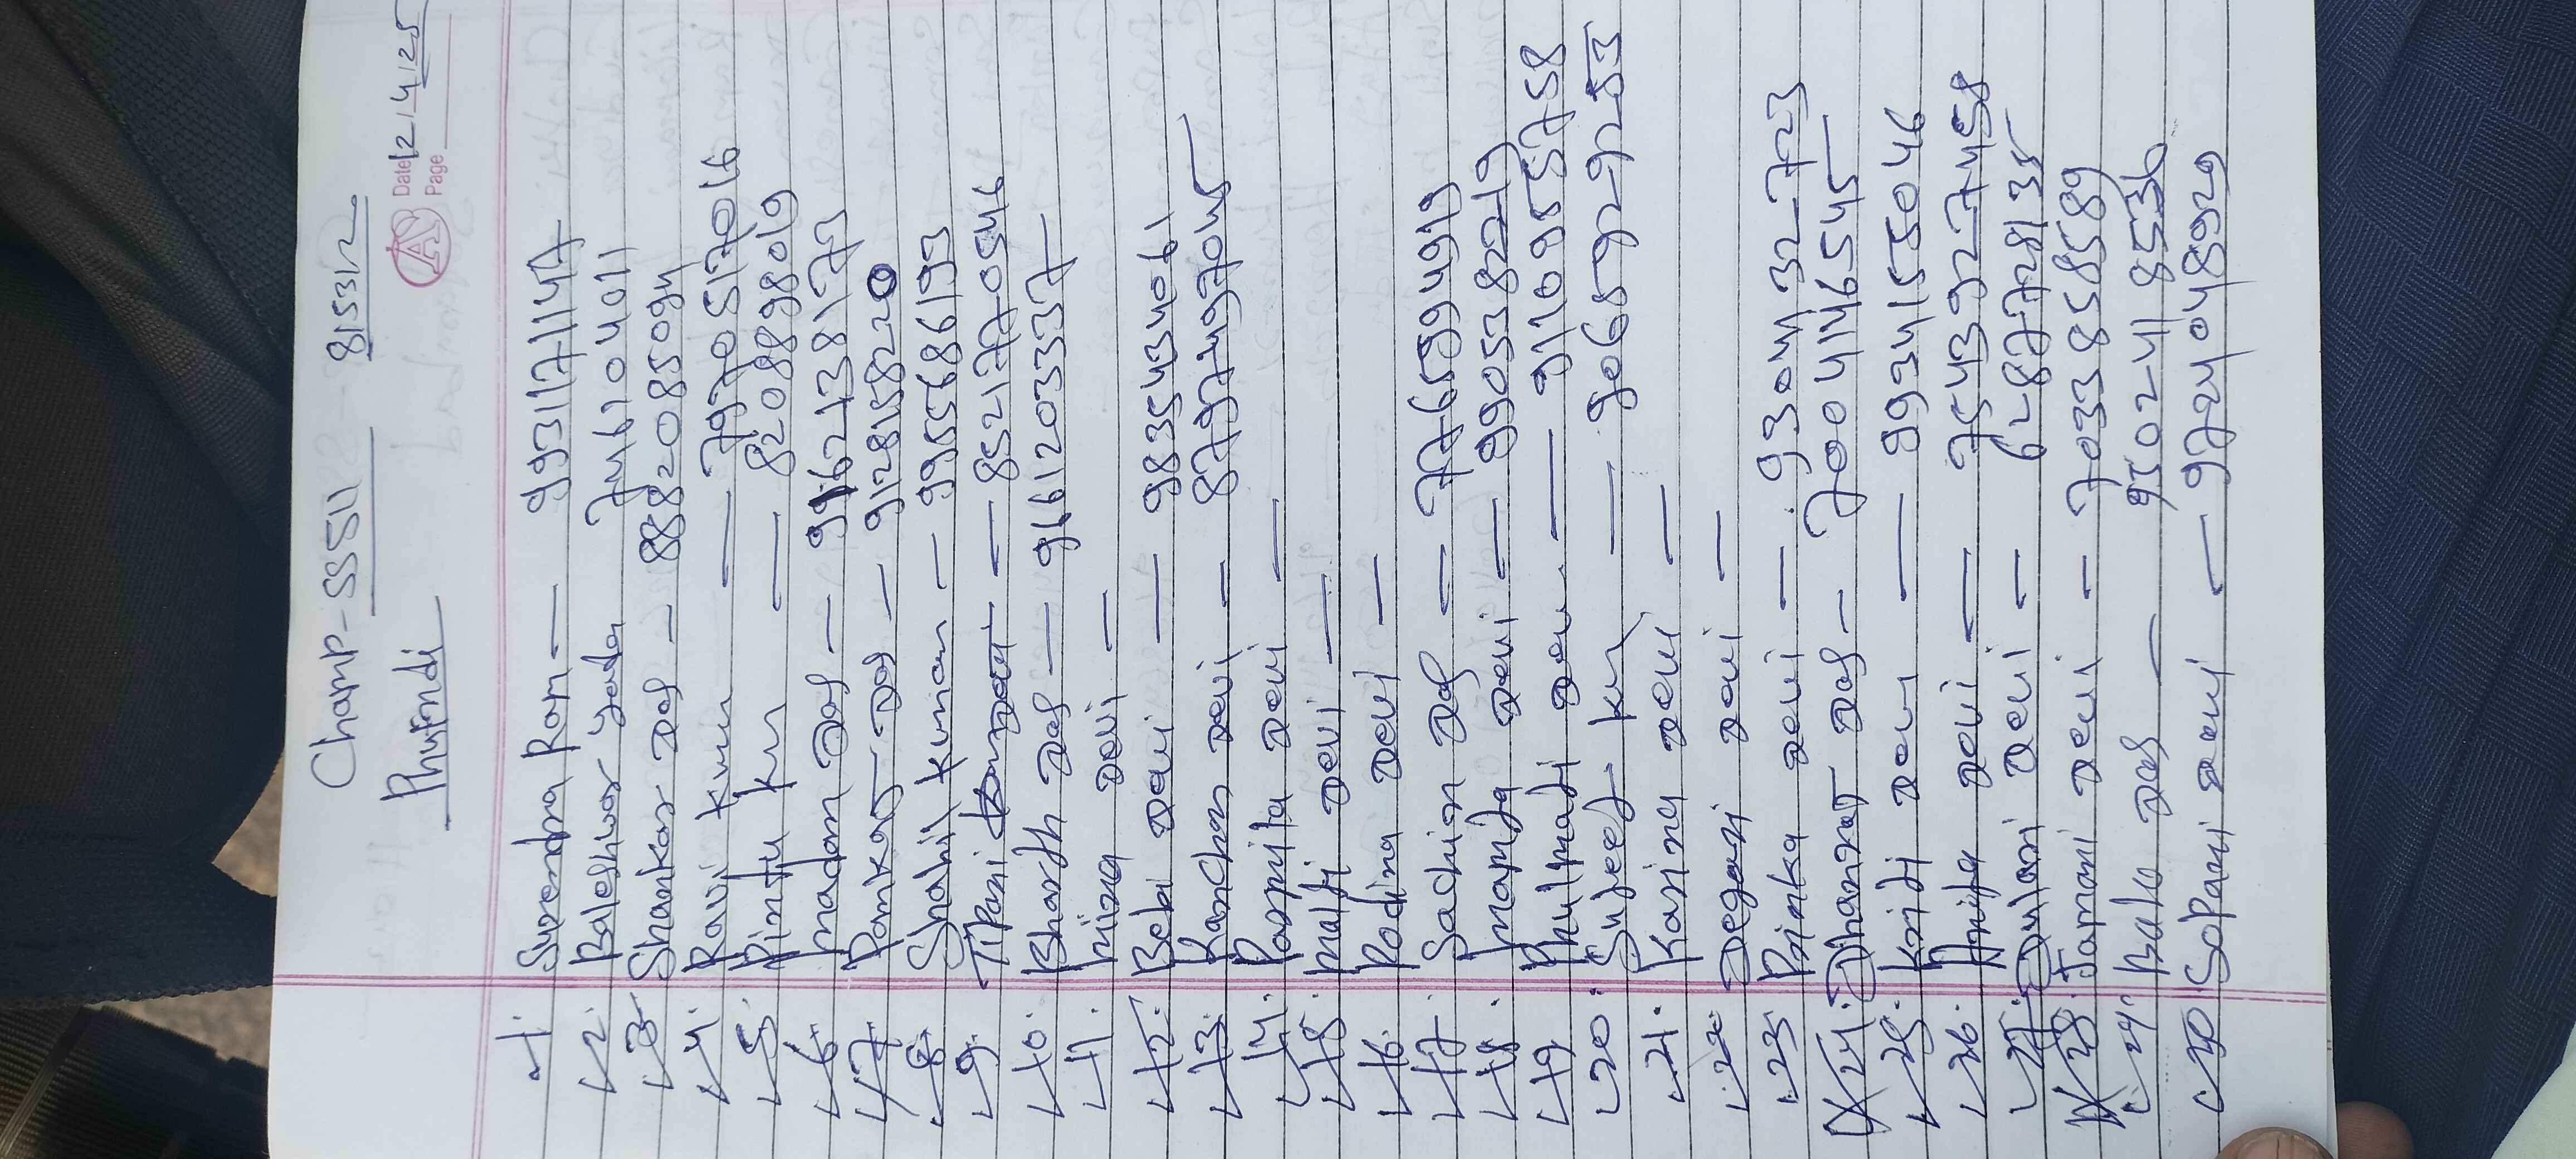 Champ-SS511 - 815312
Date 12/4/25
Page
Phufndi
1. Surendra Ram — 9931171147
2. Baleshwar yada 7461104011
3. Shankar Das — 882085094
4. Ravi Kum — 7970517016
5. Pintu Ku — 8208898019
6. Madan Das —
7. Pankaj Das — 9128158220
8. Shahil Kuman — 9955686193
9. Tipani — 8521770546
10. Bharth Das — 9661203337
11. Mina Devi —
12. Bebi Devi — 9835434061
13. Kanchan Devi — 8797497045
14. Parmila Devi —
15. Malti Devi —
16. Padina Devi —
17. Sachin Das — 7765994919
18. Manita Devi — 9905382219
19. Phulmati Devi — 9116955758
20. Sujeet Ku — 9065929253
21. Karina Devi —
22. Degani Devi —
23. Prinka Devi — 9304432723
24. Dhannat Das — 7004146545
25. Kriti Devi — 9934155046
26. Anita Devi — 7543927458
27. Dulari Devi — 6287728135
28. Jamani Devi — 7033858589
29. Malo Das — 9102418536
30 Sopani Devi — 9724048929